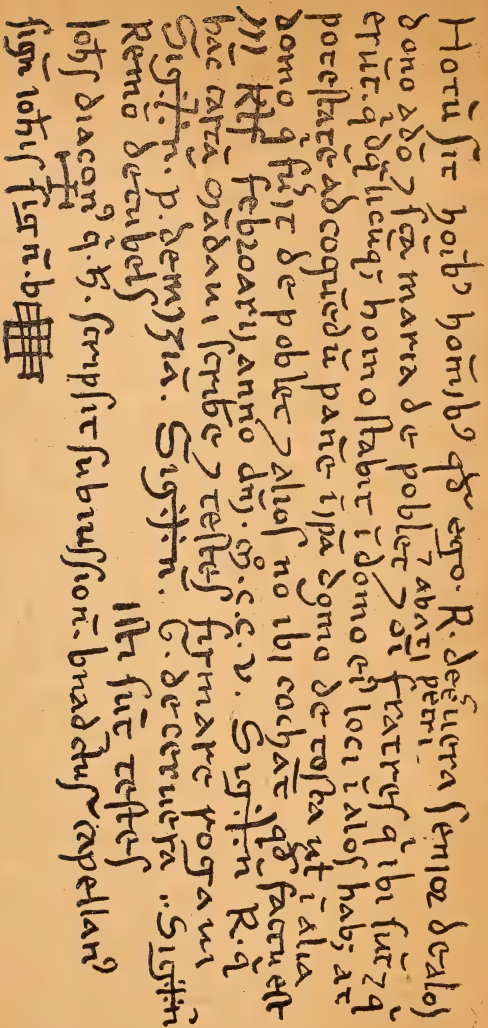 Notū sit hoib; homib; qđ ego. R. de ceruera senior de alos
dono a dō ⁊ scā maria de poblet ⁊ abati petri ⁊ oi fratres q ibi sūt ⁊ q
erūt. qđ qlicūq; homo stabit ī domo ei loci ī alos hab; at
potestatē ad coqēdū panē ī ipā domo de costa ut ī alia
domo q fuit de poblet ⁊ alios no ibi cochāt. qđ factu est
iii kł febroarij anno dnj. m. c. c. v. Sig+n R. q
hāc cartā mādaui scribe ⁊ testes firmare rogaui
Sig+n. p. de Sig+n. G. de ceruera. Sig+n
Remō de ribels illi sūt testes
Iohs diacon q. h. scripsit sub iussiōn. bnadctus capellan
sign iohis sign. b